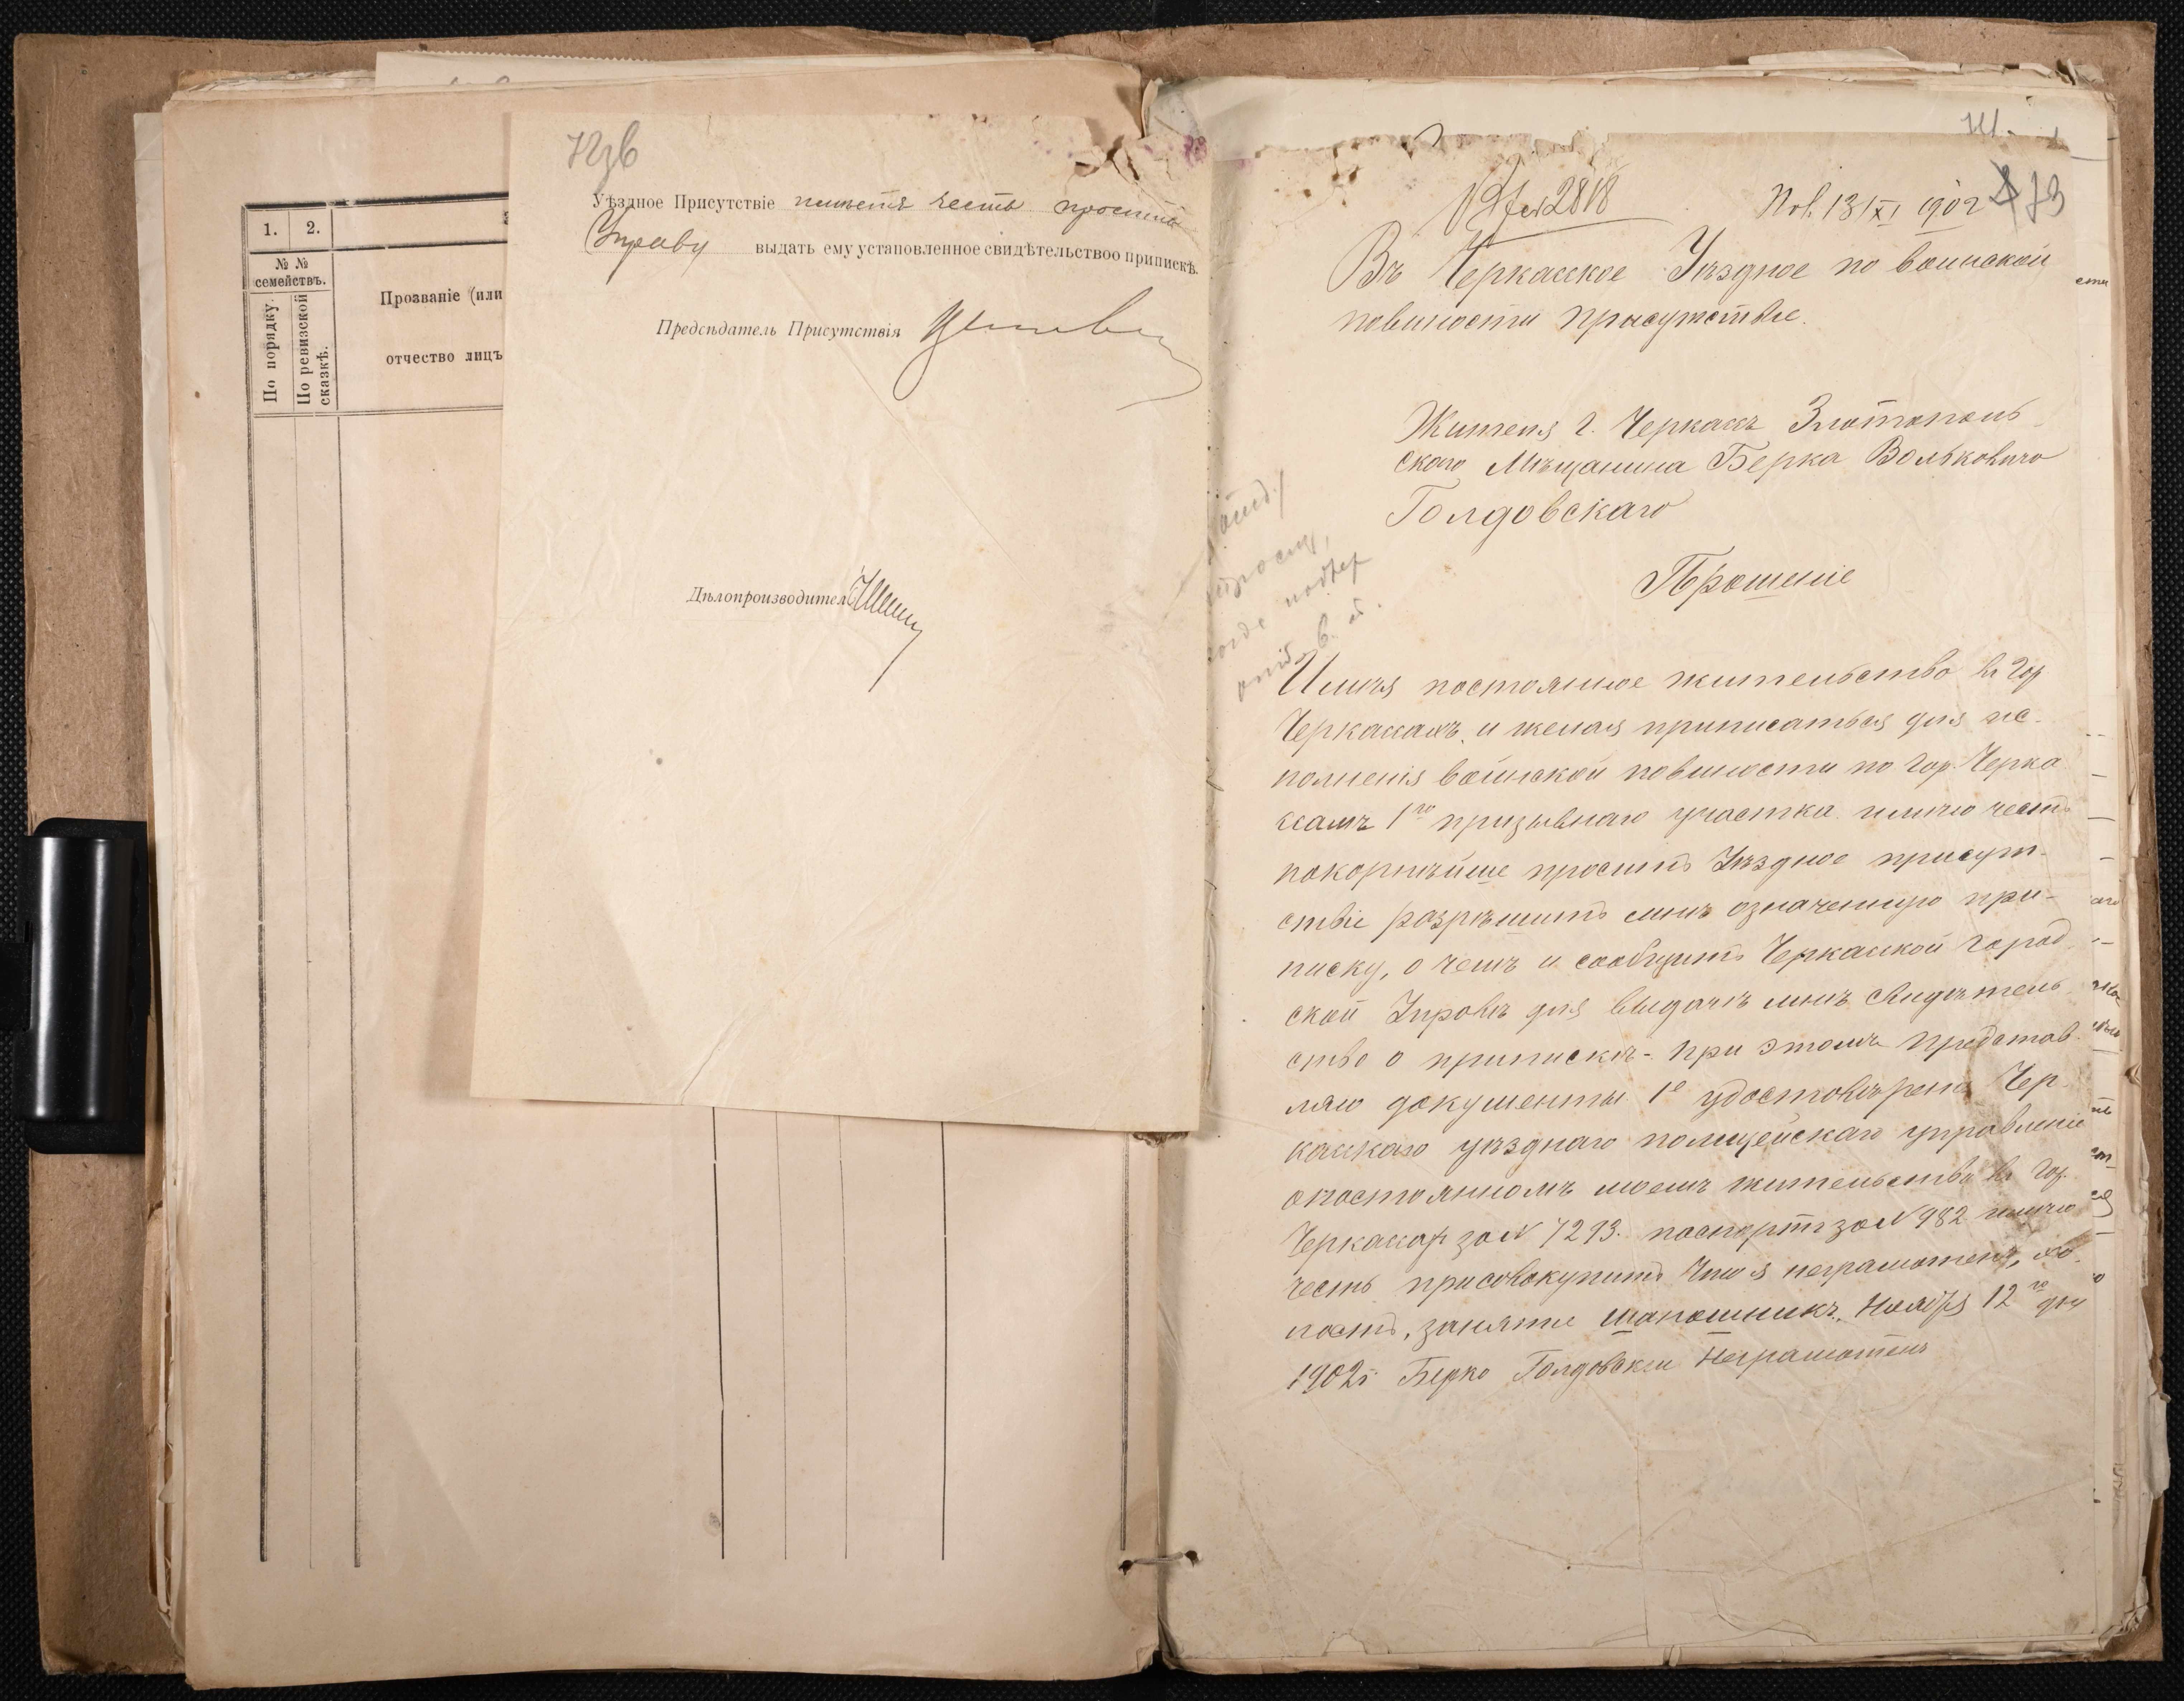 1. 2.
№ №
семействъ.
По порядку.
По ревизской
сказкѣ.
Прозваніе (или
отчество лицъ
Уѣздное Присутствіе имѣетъ честь просить
Управу выдать ему установленное свидѣтельствоо припискѣ.
Предсѣдатель Присутствія
Дѣлопроизводитель
2818
Пол. 13/XI 1902 73
Въ Черкасское Уѣздное по воинской
повиности присутствіе.
Жителя г. Черкасъ Златополь
скаго Мѣщанина Берка Вольковича
Голдовскаго
Прошеніе
Имѣя постоянное жительство въ гор
Черкасахъ, и желая приписаться для ис-
полненія воинской повиности по гор. Черка
ссамъ 1го призывнаго участка имѣю честь
покорнѣйше просить Уѣздное присут-
ствіе разрѣшить мнѣ означенную при-
писку, о чемъ и сообщить Черкаской город
ской Управѣ для выдачѣ мнѣ свидѣтель
ство о припискѣ - при этомъ представ-
ляю документы 1е удостовѣреніе Чер
каскаго уѣзднаго полицейскаго управленіе
опостоянномъ моемъ жительства въ гор.
Черкасах за № 7293. паспортъ за № 982 имѣю
честь присовокупить что я неграмотенъ, хо-
лостъ, занятіе шапошникъ, Ноября 12го дня
1902г Берко Голдовски Неграмотенъ